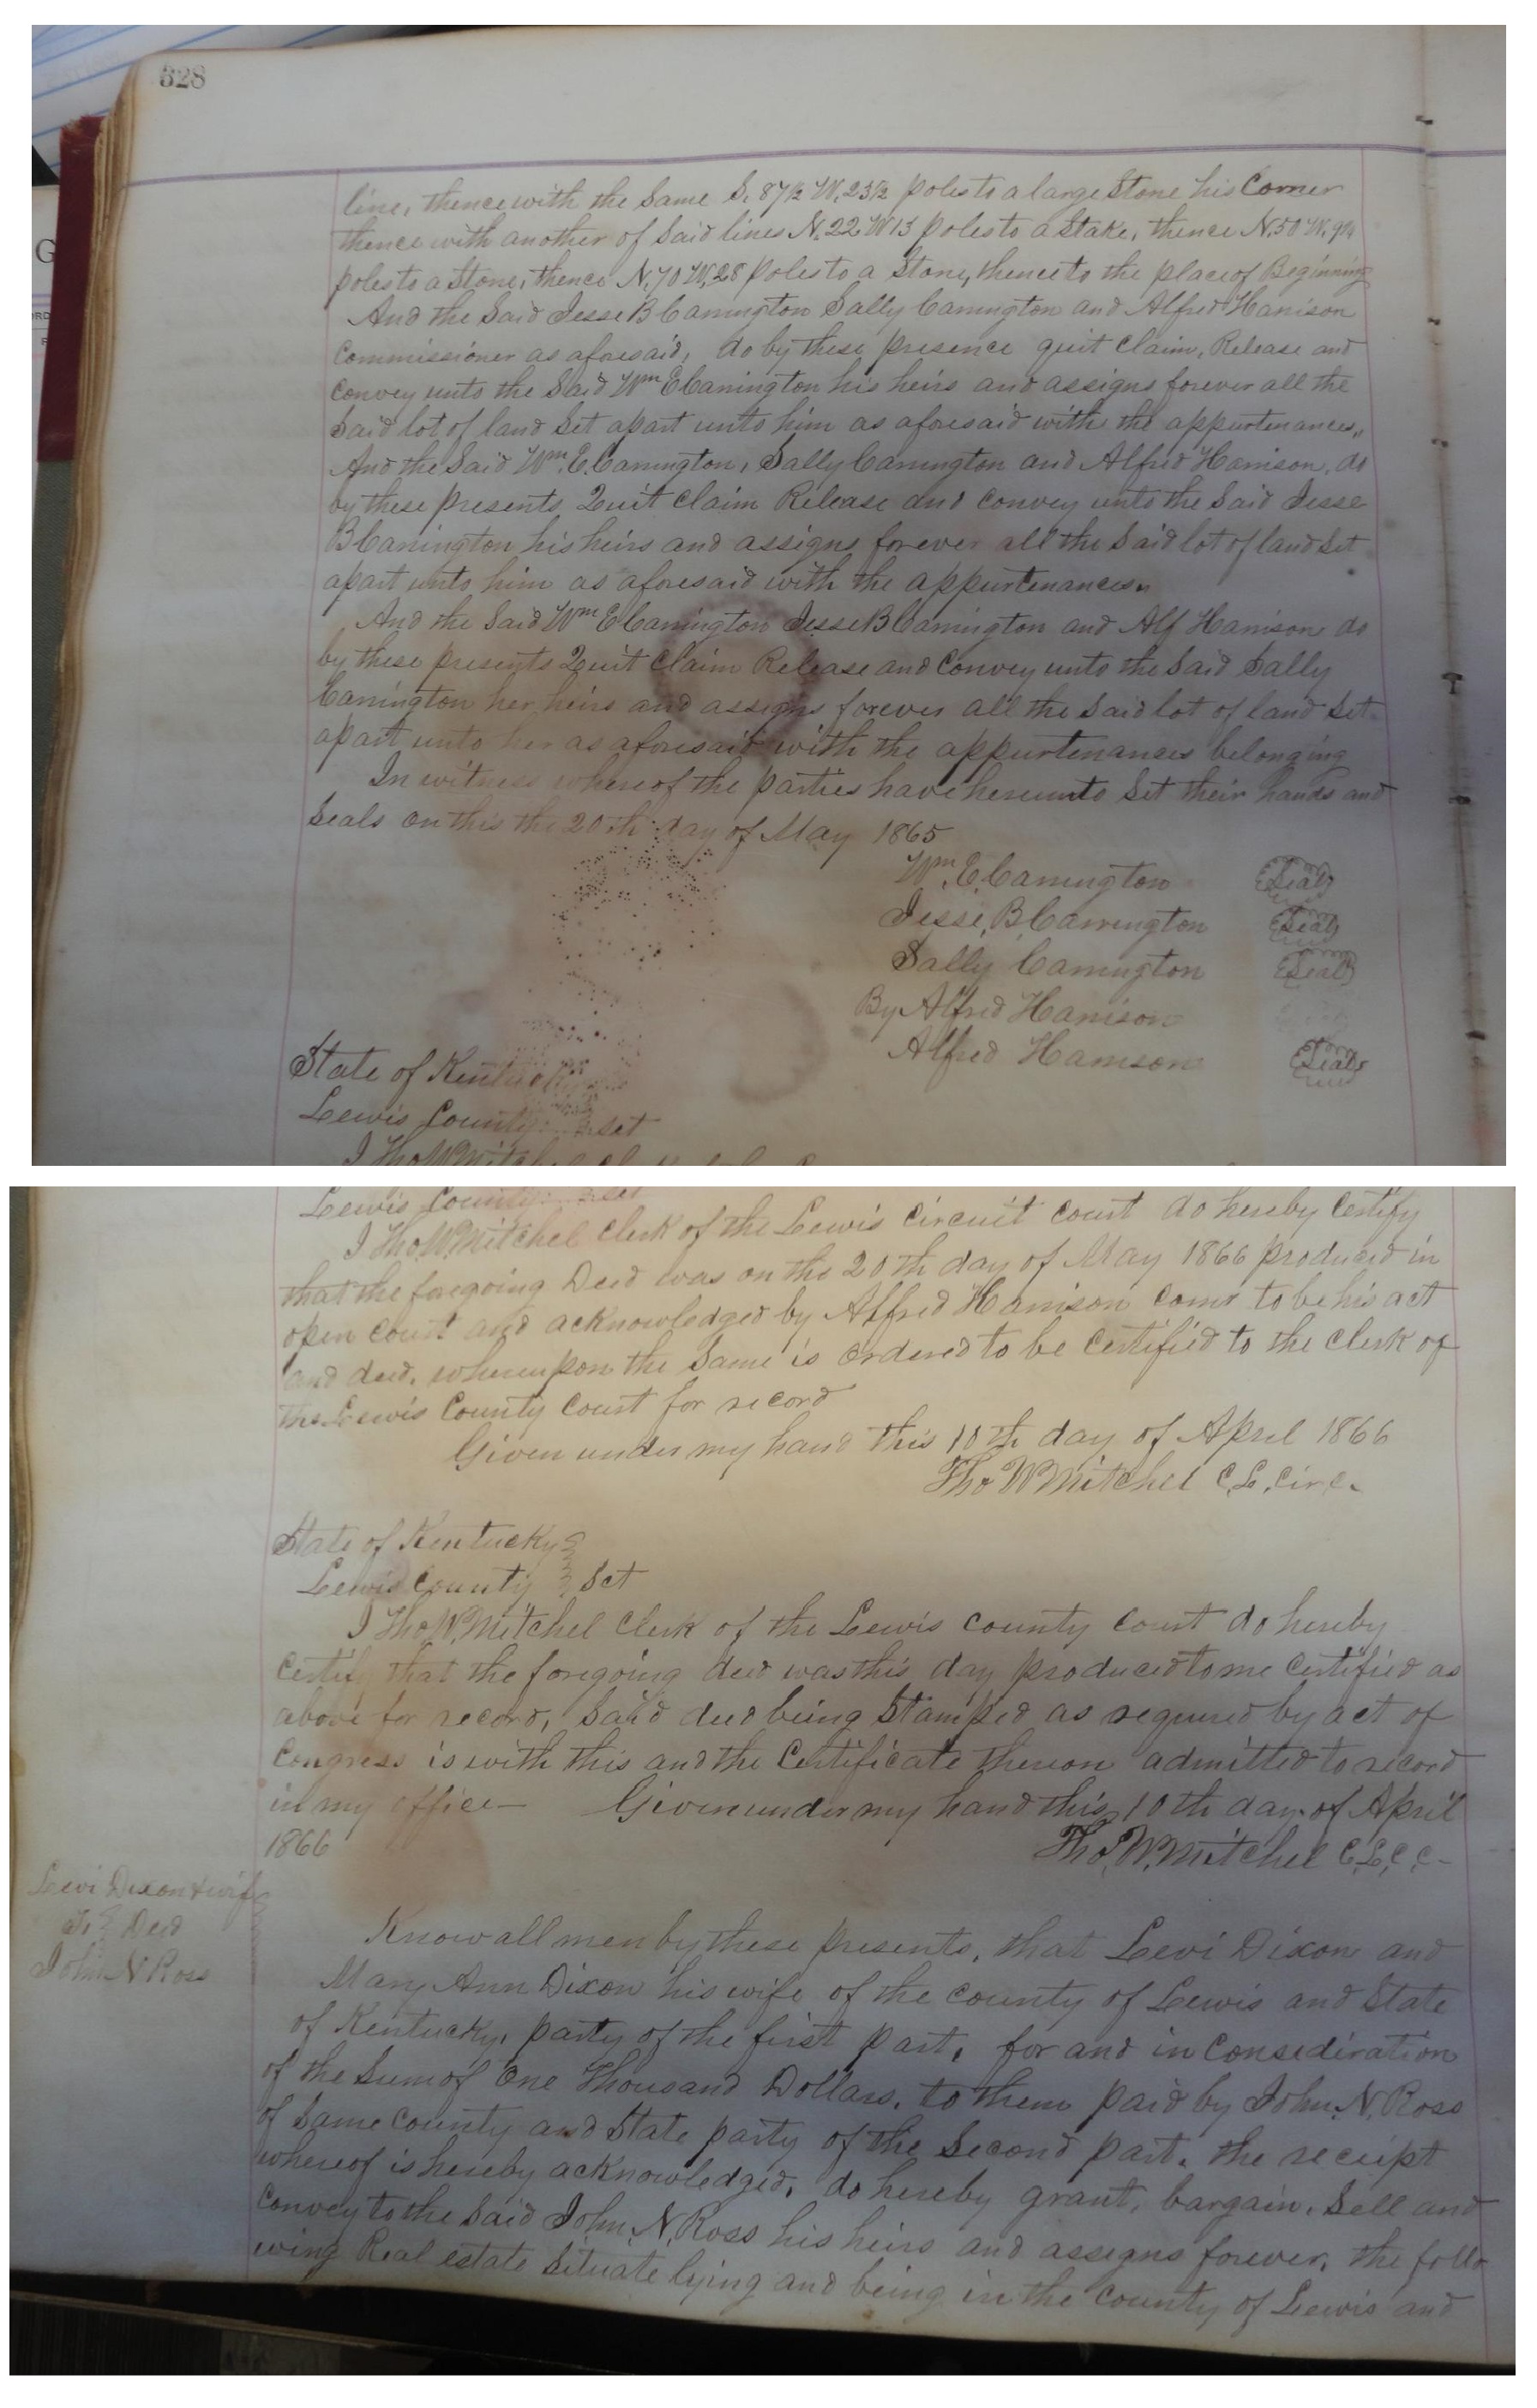 328
line, thence with the Same S. 87½ W. 23½ poles to a large Stone his Corner
thence with another of Said lines N. 22 W 13 poles to a Stake, thence N. 50 W.
poles to a Stone, thence N. 70 W. 28 poles to a Stone, thence to the place of Beginning
And the Said Jesse B Carrington Sally Carrington and Alfred Harrison
Commissioner as aforesaid, do by these presence quit Claim, Release and
Convey unto the Said Wm E Carrington his heirs and assigns forever all the
Said lot of land Set apart unto him as aforesaid withe the appurtenances,,
And the Said Wm. E. Carrington, Sally Carrington and Alfred Harrison, do
by these presents, Quit Claim Release and Convey unto the Said Jesse
B Carrington his heirs and assigns forever all the Said lot of land Set
apart unto him as aforesaid with the appurtenances.
And the Said Wm E Carrington Jesse B Carrington and Alf Harrison do
by these presents Quit Claim Release and Convey unto the Said Sally
Carrington her heirs and assigns forever all the Said lot of land Set
apart unto her as aforesaid with the appurtenances belonging
In witness whereof the parties have hereunto Set their hands and
Seals on this the 20th day of May 1865
Wm. E. Carrington Seal
Jesse, B Carrington Seal
Sally Carrington Seal
By Alfred Harrison
Alfred Harrison Seal
State of Kentucky
Lewis County Sct
I Tho W Mitchel
Lewis County Sct
I Tho W. Mitchel Clerk of the Lewis Circuit Court do hereby Certify
that the foregoing Deed was on the 20th day of May 1866 produced in
open Court and acknowledged by Alfred Harrison Comr to be his act
and deed, whereupon the Same is ordered to be Certified to the Clerk of
the Lewis County Court for record
Given under my hand this 10th day of April 1866
Tho W Mitchel C. L. Cir. C.
State of Kentucky
Lewis County Sct
I Tho W. Mitchel Clerk of the Lewis County Court do hereby
Certify that the foregoing deed was this day produced to me Certified as
above for record, Said deed being Stamped as required by act of
Congress is with this and the Certificate thereon admitted to record
in my office— Given under my hand this 10th day of April
1866
Tho. W. Mitchel C. L. C. C.
Levi Dixon & wife
to Deed
John N Ross
Know all men by these presents, that Levi Dixon and
Mary Ann Dixon his wife of the County of Lewis and State
of Kentucky, party of the first part, for and in Consideration
of the Sum of One Thousand Dollars, to them paid by John. N. Ross
of Same County and State party of the Second part, the receipt
whereof is hereby acknowledged, do hereby grant, bargain, Sell and
Convey to the Said John. N. Ross his heirs and assigns forever, the follo
wing Real estate Situate lying and being in the County of Lewis and